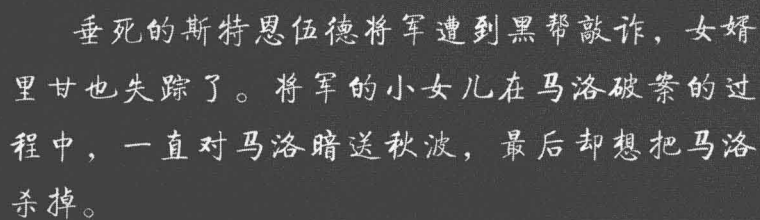 垂死的斯特恩伍德将军遭到黑帮敲诈，女婿
里甘也失踪了。将军的小女儿在马洛破案的过
程中，一直对马洛暗送秋波，最后却想把马洛
杀掉。